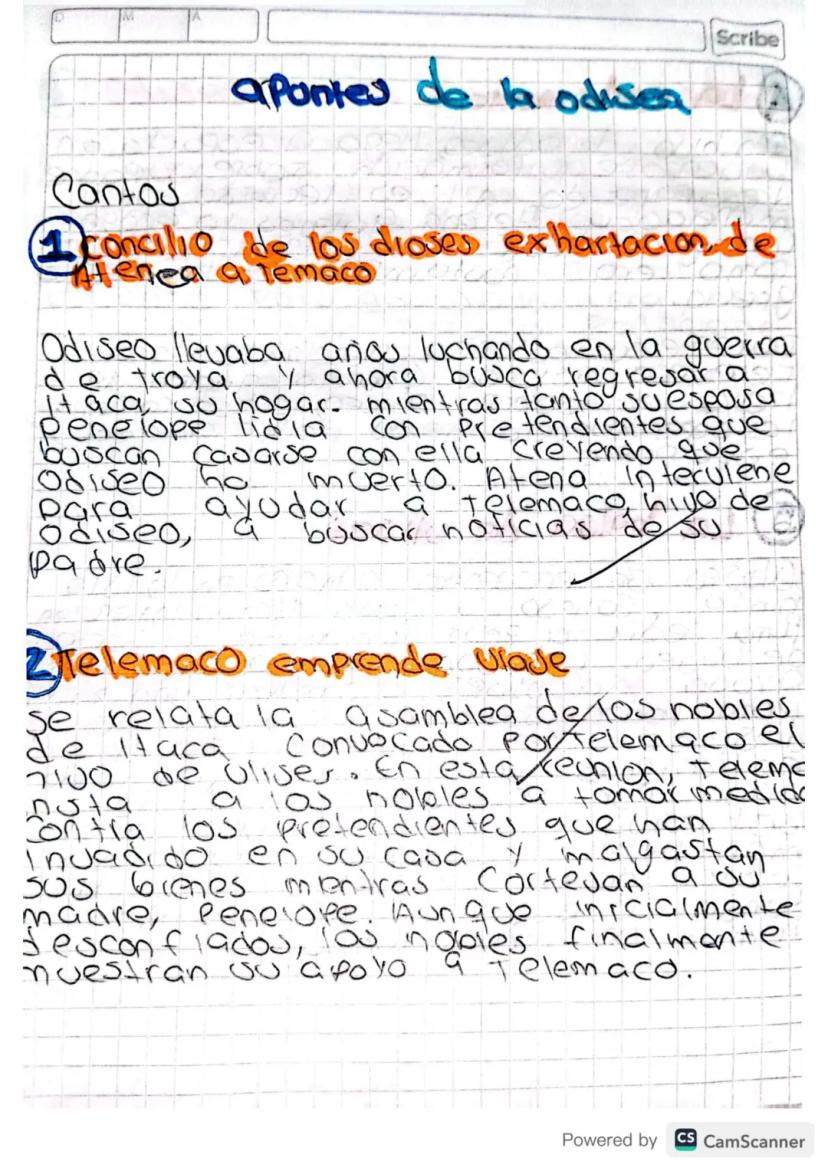 D M A
Scribe
apuntes de la odisea
Cantos
1 concilio de los dioses exhartacion de
Atenea a Temaco
Odiseo llevaba años luchando en la guerra
de troya y ahora busca regresar a
Itaca, su hogar. mientras tanto su esposa
Penelope lidia con pretendientes que
buscan casarse con ella creyendo que
Odiseo ha muerto. Atena interviene
para ayudar a Telemaco, hijo de
odiseo, a buscar noticias de su
padre.
2 Telemaco emprende viaje
se relata la asamblea de los nobles
de Itaca convocado por Telemaco el
hijo de Ulises. En esta reunion, Telema
nsta a los nobles a tomar medida
contra los pretendientes que han
invadido en su casa y malgastan
sus bienes mientras cortejan a su
madre, Penelope. Aunque inicialmente
desconfiados, los nobles finalmente
muestran su apoyo a Telemaco.
Powered by CS CamScanner